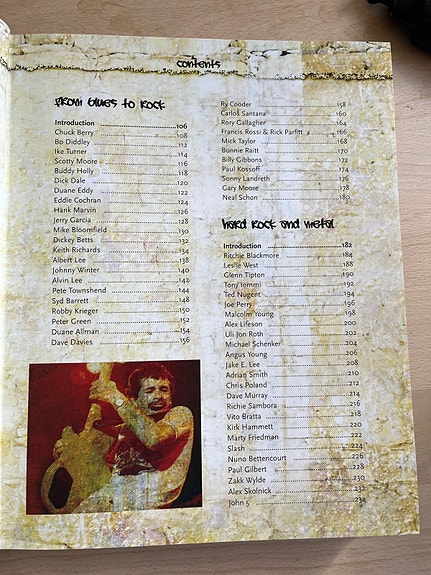 contents
From Blues to Rock
Introduction 106
Chuck Berry 108
Bo Diddley 112
Ike Turner 114
Scotty Moore 116
Buddy Holly 118
Dick Dale 120
Duane Eddy 122
Eddie Cochran 124
Hank Marvin 126
Jerry Garcia 128
Mike Bloomfield 130
Dickey Betts 132
Keith Richards 134
Albert Lee 138
Johnny Winter 140
Alvin Lee 142
Pete Townshend 144
Syd Barrett 148
Robby Krieger 150
Peter Green 152
Duane Allman 154
Dave Davies 156
Ry Cooder 158
Carlos Santana 160
Rory Gallagher 164
Francis Rossi & Rick Parfitt 166
Mick Taylor 168
Bonnie Raitt 170
Billy Gibbons 172
Paul Kossoff 174
Sonny Landreth 176
Gary Moore 178
Neal Schon 180
Hard Rock and Metal
Introduction 182
Ritchie Blackmore 184
Leslie West 188
Glenn Tipton 190
Tony Iommi 192
Ted Nugent 194
Joe Perry 196
Malcolm Young 198
Alex Lifeson 200
Uli Jon Roth 202
Michael Schenker 204
Angus Young 206
Jake E. Lee 208
Adrian Smith 210
Chris Poland 212
Dave Murray 214
Richie Sambora 216
Vito Bratta 218
Kirk Hammett 220
Marty Friedman 222
Slash 224
Nuno Bettencourt 226
Paul Gilbert 228
Zakk Wylde 230
Alex Skolnick 232
John 5 234